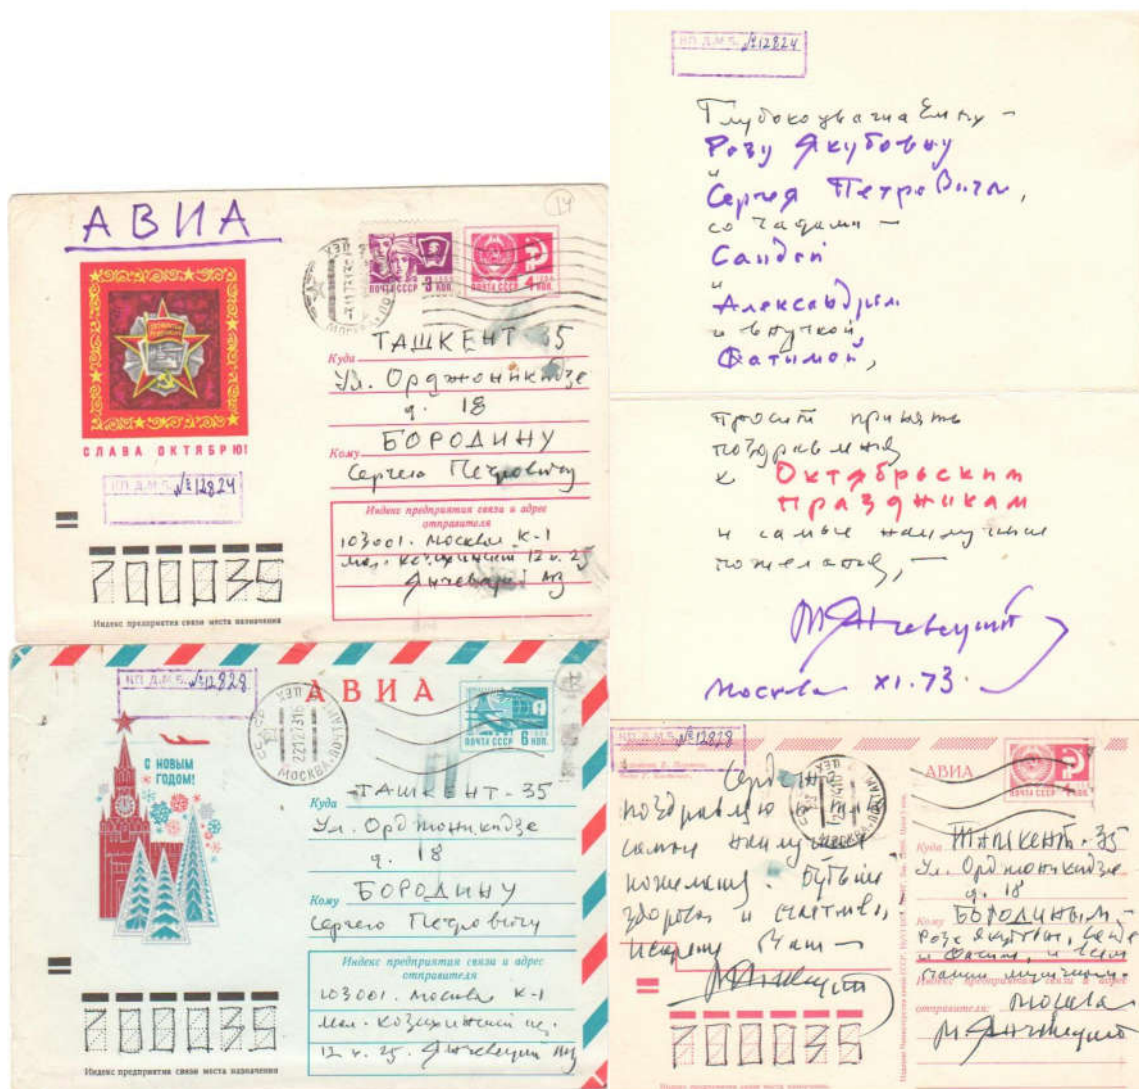 АВИА
СЛАВА ОКТЯБРЮ!
КП Д.М.Б. №12824
3 КОП.
ПОЧТА СССР
4 КОП.
ПОЧТА СССР
МОСКВА
Куда ТАШКЕНТ 35
Ул. Орджоникидзе
д. 18
Кому БОРОДИНУ
Сергею Петровичу
Индекс предприятия связи и адрес
отправителя
103001. Москва К-1
Мал. Козихинский 12 к. 25
Янчевецкий МВ
700035
Индекс предприятия связи места назначения
КП Д.М.Б. №12828
АВИА
С НОВЫМ
ГОДОМ!
ПОЧТА СССР 6 КОП.
МОСКВА-ПОЧТАМТ
221273
Куда ТАШКЕНТ-35
Ул. Орджоникидзе
д. 18
Кому БОРОДИНУ
Сергею Петровичу
Индекс предприятия связи и адрес
отправителя
103001. Москва К-1
Мал. Козихинский пе.
12 к. 25. Янчевецкий МВ
700035
Индекс предприятия связи места назначения
КП Д.М.Б. №12824
Глубокоуважаемых –
Розу Якубовну
и
Сергея Петровича,
со чадами –
Сандей
и
Александрым
и внучкой
Фатимой,
просит принять
поздравления
к Октябрьским
праздникам
и самые наилучшие
пожелания, –
М Янчевецкий
Москва XI.73.
КП Д.М.Б. №12828
АВИА
ПОЧТА СССР 4 КОП.
поздравляю
самые наилучшие
пожелания. Будьте
здоровы и счастливы,
Искренне Ваш –
М Янчевецкий
Куда ТАШКЕНТ-35
Ул. Орджоникидзе
д. 18
Кому БОРОДИНЫМ –
Розе Якубовне,
и Фатиме, и всем
Индекс предприятия связи и адрес
отправителя: Москва
М. Янчевецкий
700035
Индекс предприятия связи места назначения.